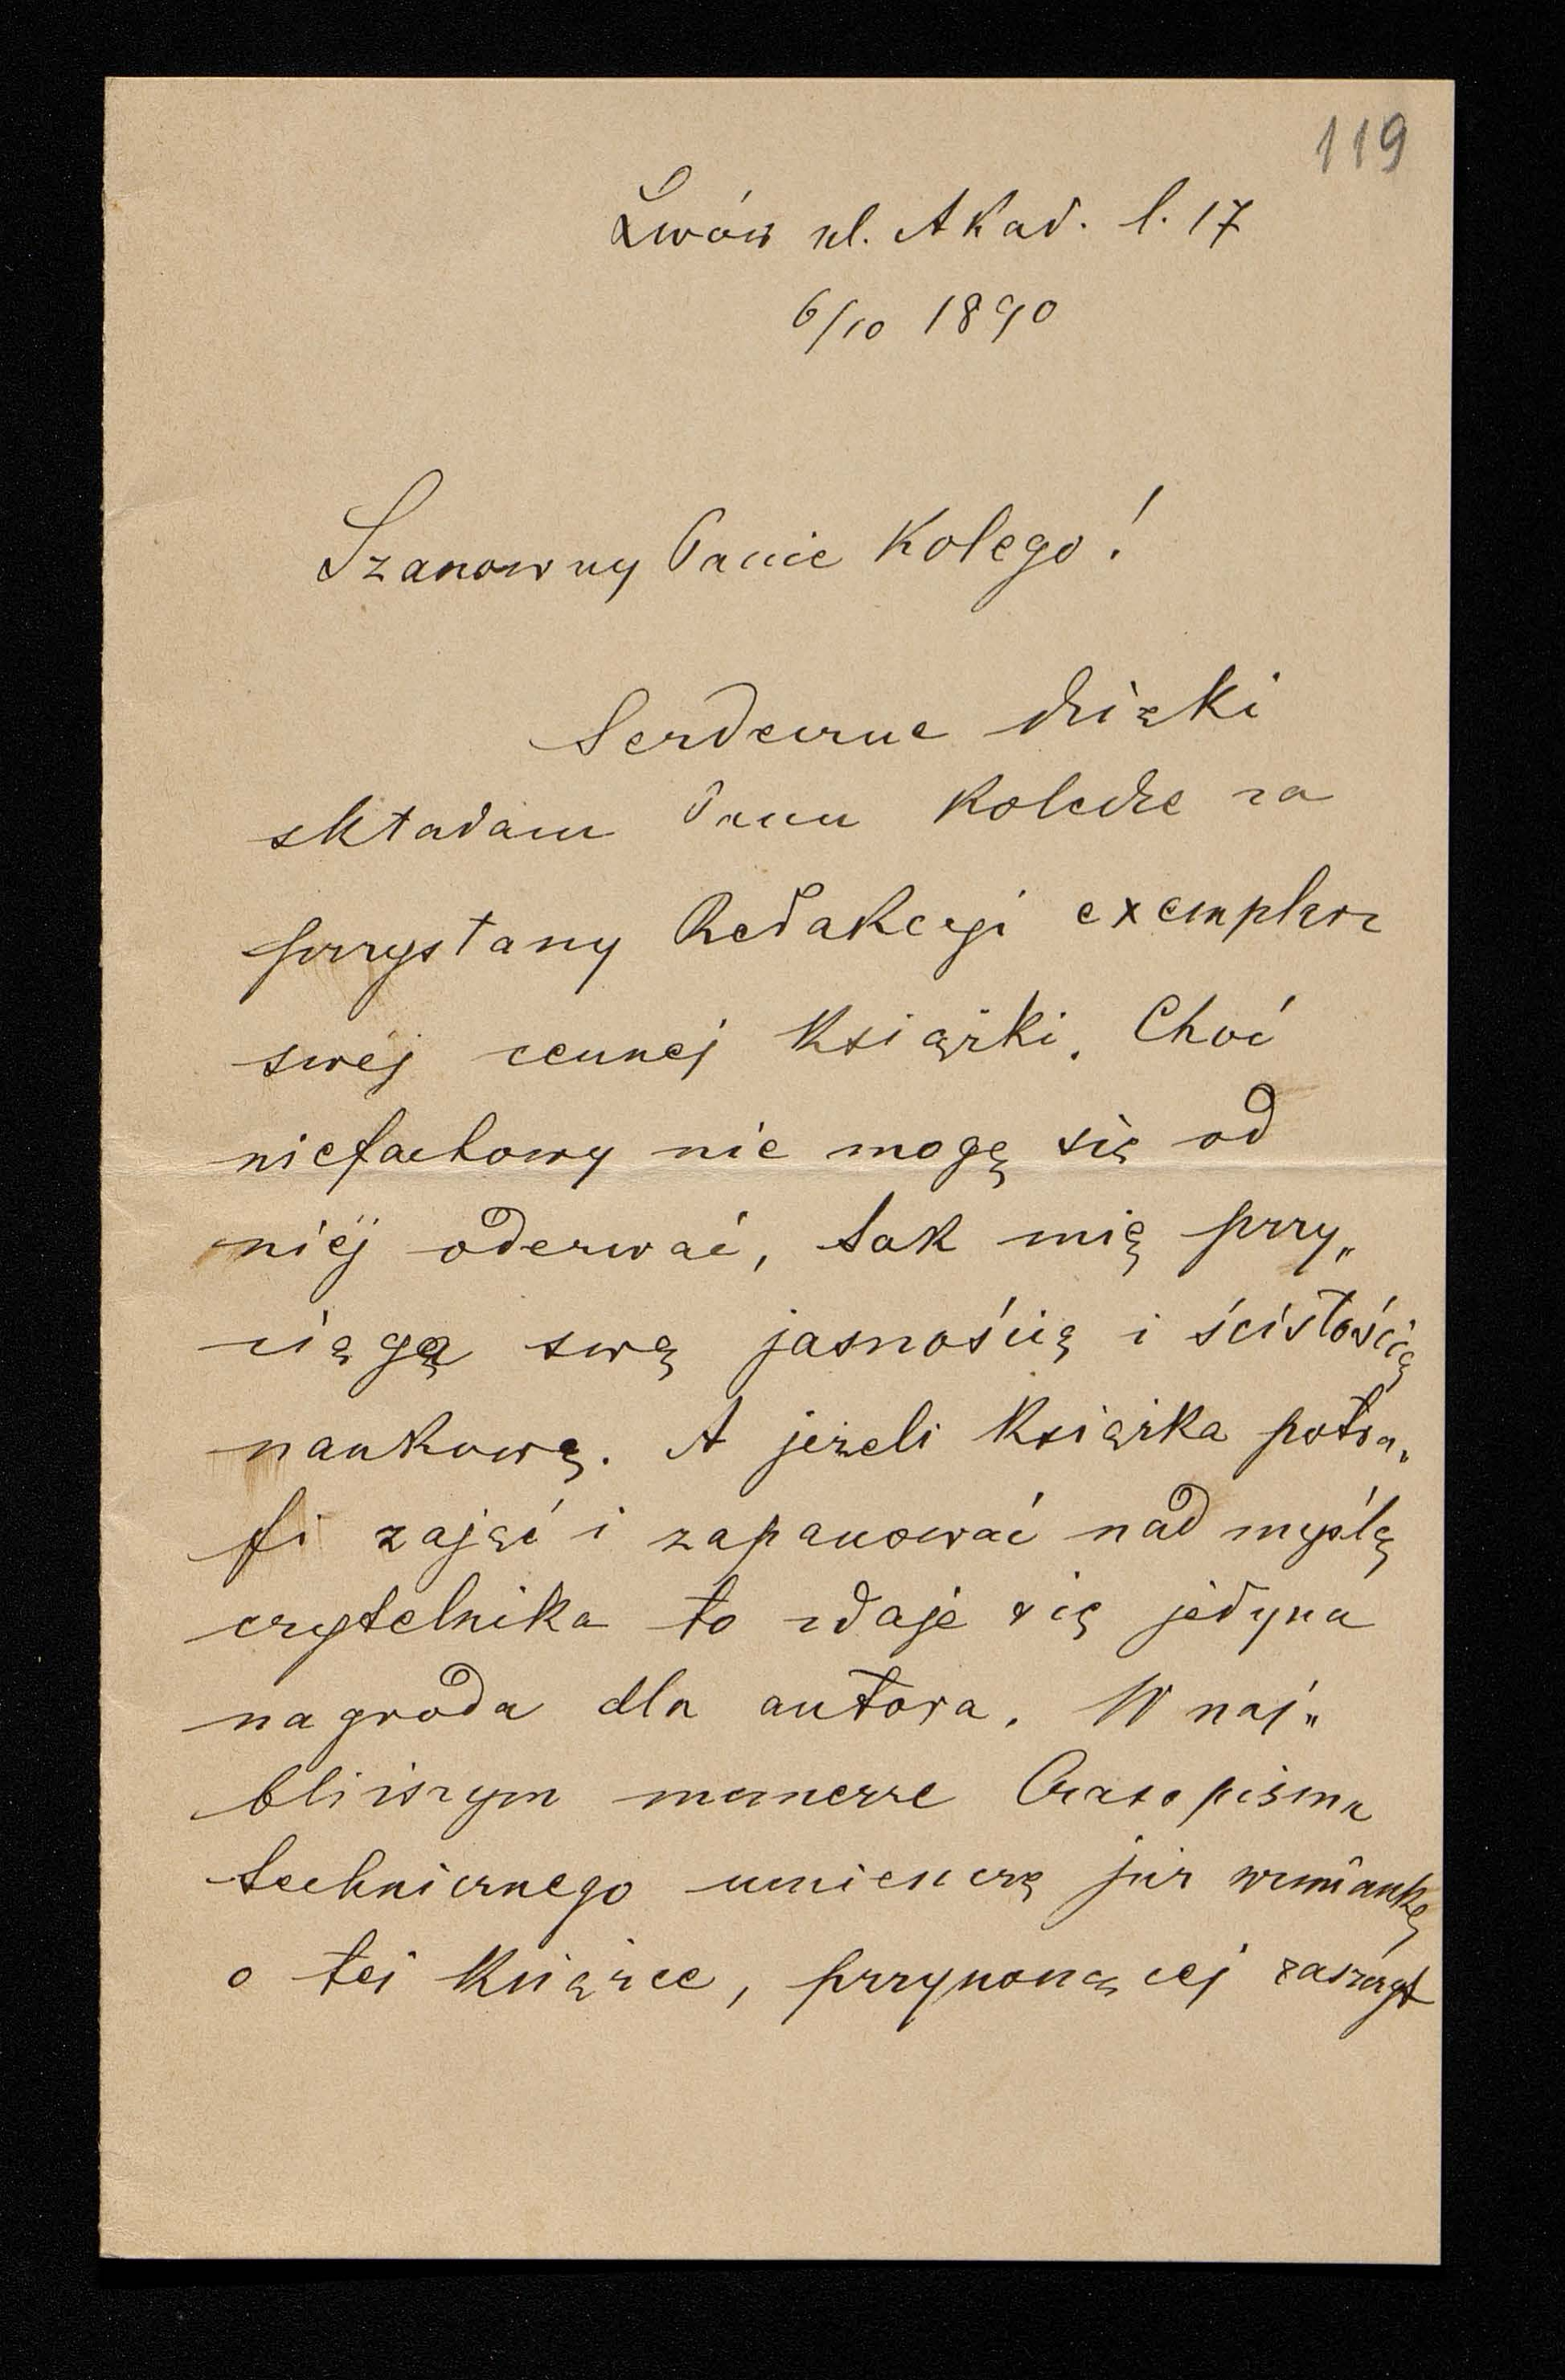 119
Lwów ul. Akad. l. 17
6/10 1890
Szanowny Panie Kolego!
Serdeczne dzięki
składam Panu Koledze za
przysłany Redakcyi exemplarz
swéj cennéj książki. Choć
niefachowy nie mogę się od
niéj oderwać, tak mię przy„
ciąga swą jasnością i ścisłością
naukową. A jeżeli książka potra„
fi zająć i zapanować nad myślą
czytelnika to zdaje się jedyna
nagroda dla autora. W naj„
bliższym numerze Czasopisma
technicznego umieszczę już wzmiankę
o téj książce, przynoszącéj zaszczyt